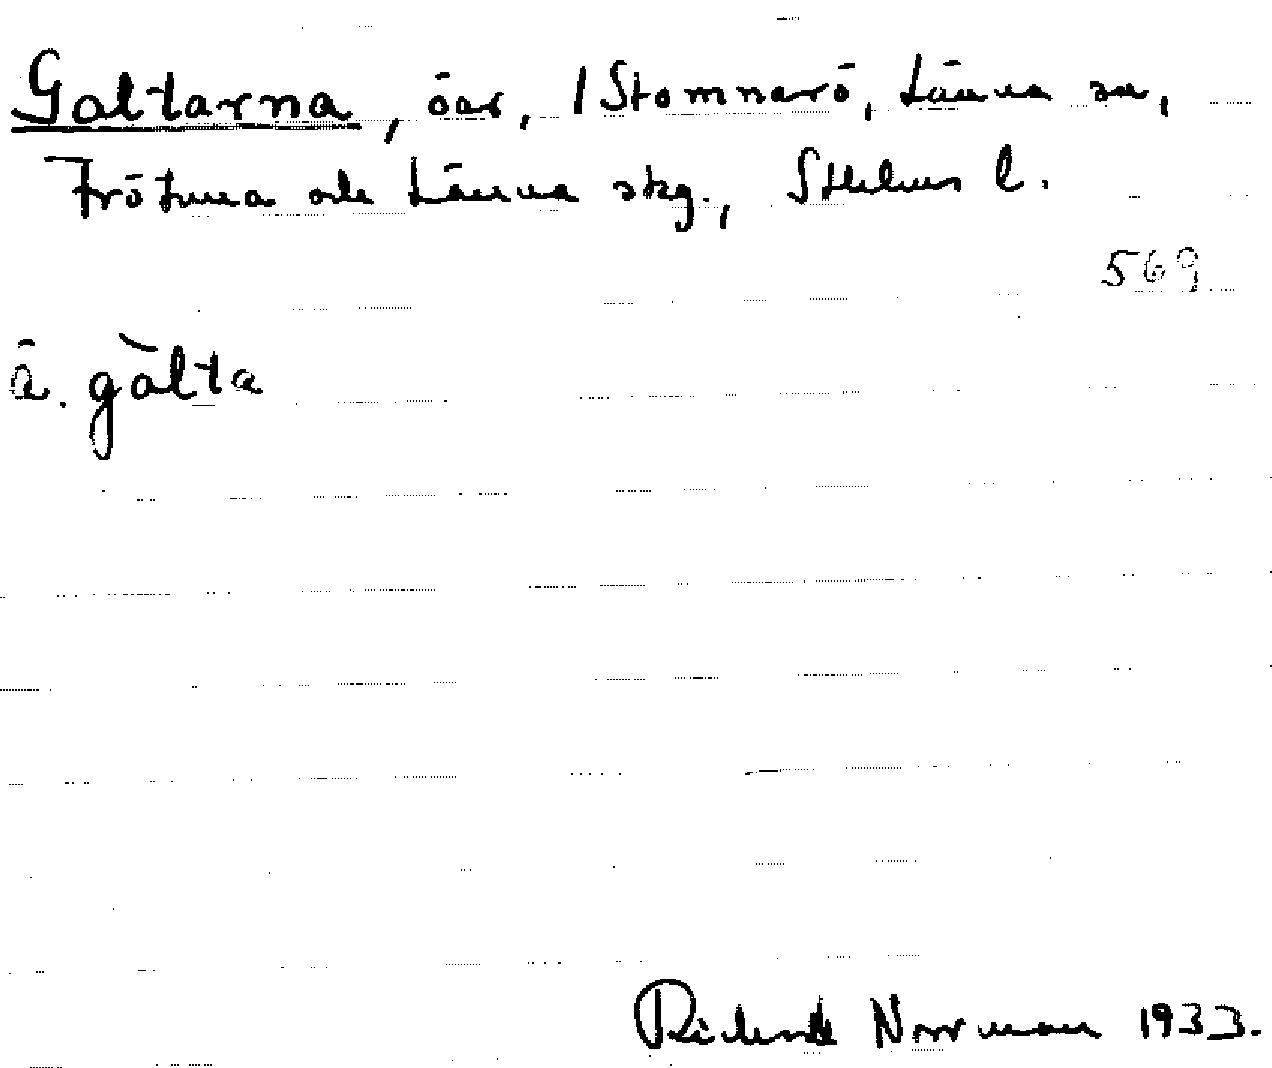 Galtarna, öar, 1 Stomnarö, Länna sn,
Frötuna och Länna skg., Sthlms l.
569
å. gàlta
Rickard Norrman 1933.